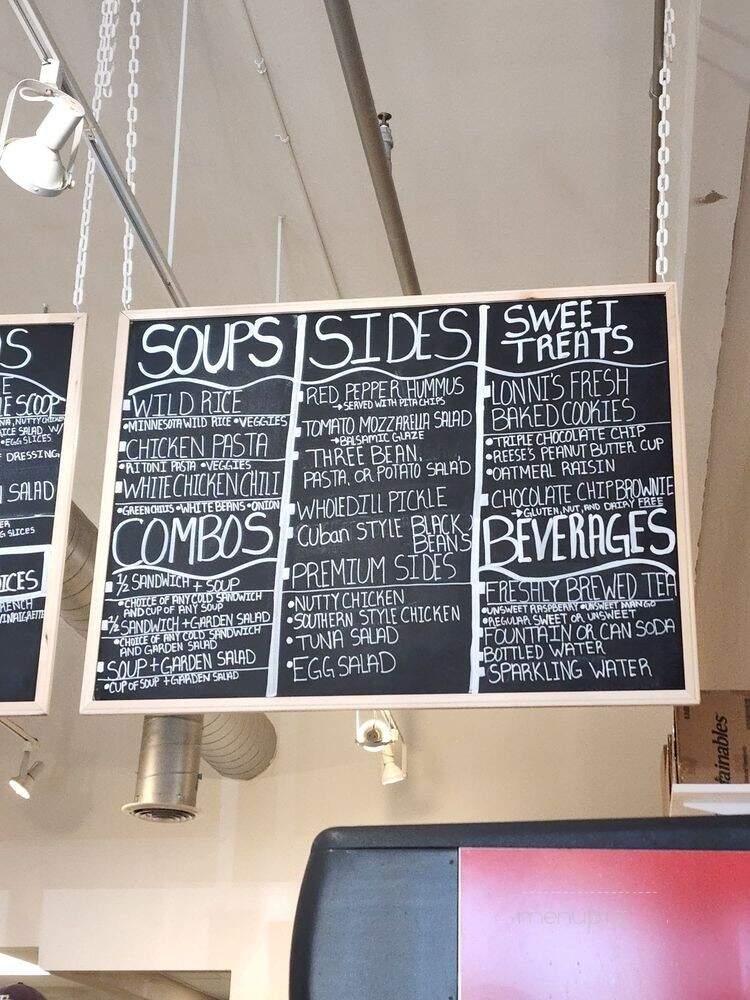 SOUPS
WILD RICE
•MINNESOTA WILD RICE •VEGGIES
CHICKEN PASTA
•RITONI PASTA •VEGGIES
WHITE CHICKEN CHILI
•GREEN CHILIS •WHITE BEANS •ONION
COMBOS
½ SANDWICH + SOUP
•CHOICE OF ANY COLD SANDWICH
AND CUP OF ANY SOUP
½ SANDWICH + GARDEN SALAD
•CHOICE OF ANY COLD SANDWICH
AND GARDEN SALAD
SOUP + GARDEN SALAD
•CUP OF SOUP + GARDEN SALAD
SIDES
RED PEPPER HUMMUS
→SERVED WITH PITA CHIPS
TOMATO MOZZARELLA SALAD
→BALSAMIC GLAZE
THREE BEAN,
PASTA, OR POTATO SALAD
WHOLE DILL PICKLE
CUBAN STYLE BLACK
BEANS
PREMIUM SIDES
•NUTTY CHICKEN
•SOUTHERN STYLE CHICKEN
•TUNA SALAD
•EGG SALAD
SWEET
TREATS
LONNI'S FRESH
BAKED COOKIES
•TRIPLE CHOCOLATE CHIP
•REESE'S PEANUT BUTTER CUP
•OATMEAL RAISIN
CHOCOLATE CHIP BROWNIE
→GLUTEN, NUT, AND DAIRY FREE
BEVERAGES
FRESHLY BREWED TEA
•UNSWEET RASPBERRY •UNSWEET MANGO
•REGULAR SWEET OR UNSWEET
FOUNTAIN OR CAN SODA
BOTTLED WATER
SPARKLING WATER
SCOOP
RICE SALAD W/
•EGG SLICES
DRESSING
SALAD
SLICES
tainables
menupix